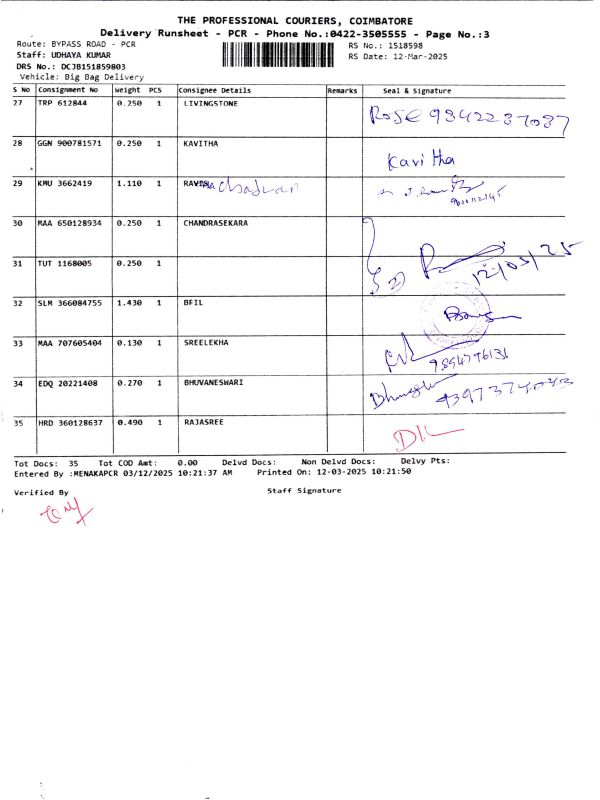 THE PROFESSIONAL COURIERS, COIMBATORE
Delivery Runsheet - PCR - Phone No.:0422-3505555 - Page No.:3
Route: BYPASS ROAD - PCR
RS No.: 1518598
Staff: UDHAYA KUMAR
RS Date: 12-Mar-2025
DRS No.: DCJB151859803
Vehicle: Big Bag Delivery
S No Consignment No Weight PCS Consignee Details Remarks Seal & Signature
27 TRP 612844 0.250 1 LIVINGSTONE ROSE 9842287087
28 GGN 900781571 0.250 1 KAVITHA Kavitha
29 KMU 3662419 1.110 1
30 MAA 650128934 0.250 1 CHANDRASEKARA
31 TUT 1168005 0.250 1 12/03/25
32 SLM 366084755 1.430 1 BFIL
33 MAA 707605404 0.130 1 SREELEKHA
34 EDQ 20221408 0.270 1 BHUVANESWARI
35 HRD 360128637 0.490 1 RAJASREE
Tot Docs: 35 Tot COD Amt: 0.00 Delvd Docs: Non Delvd Docs: Delvy Pts:
Entered By :MENAKAPCR 03/12/2025 10:21:37 AM Printed On: 12-03-2025 10:21:50
Verified By Staff Signature